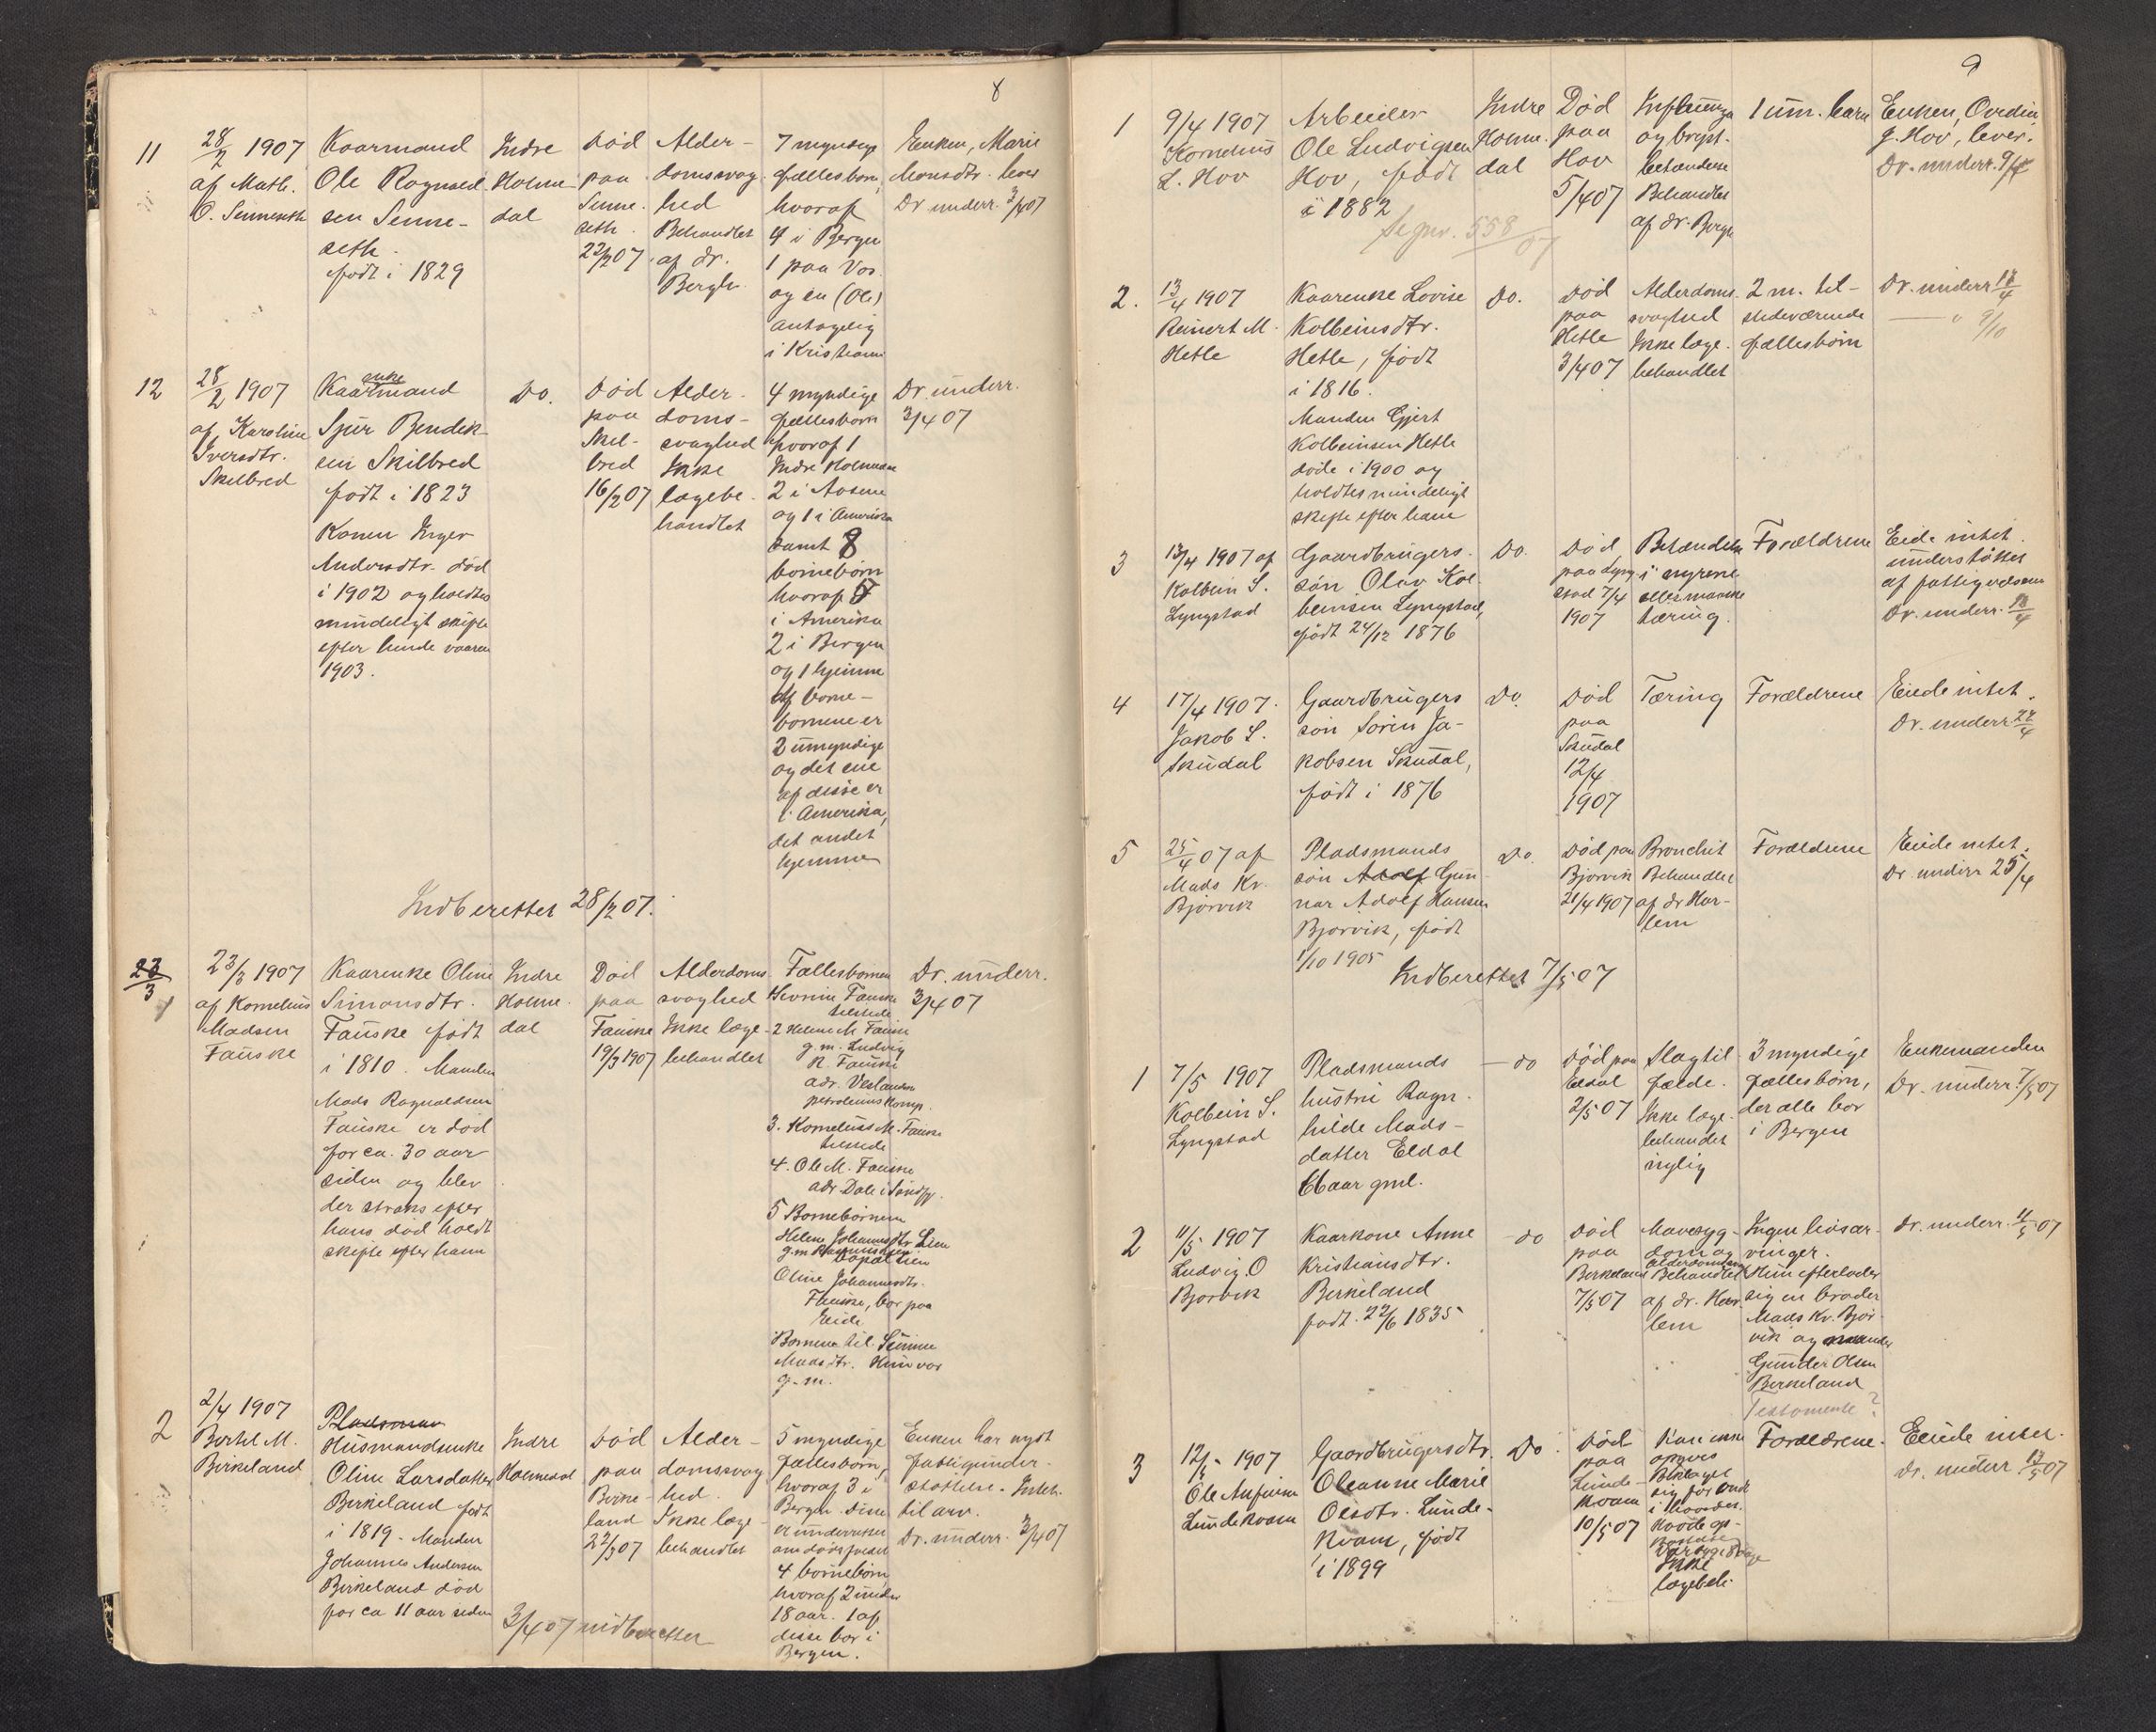 8
11
28/2 1907
af Math.
O. Senneseth
Kaarmand
Ole Rognald-
sen Senne-
seth.
født i 1829
Indre
Holme-
dal
Død
paa
Senne-
seth.
22/2 07
Alder-
domssvag-
hed
Behandlet
af dr.
Bergh
7 myndige
fællesbørn,
hvoraf
4 i Bergen
1 paa Vos.
og en (Ole)
antagelig
i Kristiania
Enken, Marie
Monsdtr. lever
Dr underr. 3/4 07
12
28/2 1907
af Karoline
Iversdtr.
Skilbred
enke
Kaarmand
Sjur Bendik-
sen Skilbred
født i 1823
Konen Inger
Andersdtr. død
i 1902 og holdtes
mindeligt skifte
efter hende vaaren
1903.
Do.
Død
paa
Skil-
bred
16/2 07
Alder-
doms-
svaghed
Ikke
lægebe-
handlet
4 myndige
fællesbørn
hvoraf 1
Indre Holmedal
2 i Aasene
og 1 i Amerika
samt 8
børnebørn
hvoraf 5
i Amerika
2 i Bergen
og 1 hjemme
Af børne-
børnene er
2 umyndige
og det ene
af disse er
i Amerika,
det andet
hjemme
Dr. underr.
3/4 07
Indberettet 28/2 07.
23/3
1
23/3 1907
af Kornelius
Madsen
Fauske
Kaarenke Oline
Simonsdtr.
Fauske født
i 1810. Manden
Mads Rognaldsen
Fauske er død
for ca. 30 aar
siden og blev
der straks efter
hans død holdt
skifte efter ham
Indre
Holme-
dal
Død
paa
Fauske
19/3 1907
Alderdoms-
svaghed
Ikke læge-
behandlet
Fællesbørnen
Fauske
tilstede
2 Helene M. Fauske
g. m. Ludvig
R. Fauske
adr. Vestlandske
petroleumskomp.
3. Kornelius M. Fauske
tilstede
4. Ole M. Fauske
adr Dale i Søndfj.
5 Børnebørnene
Helene Johannesdtr Lien
g. m. Rasmus
Lien
Oline Johannesdtr.
Fauske, bor paa
Eide
Børnene til
Madsdtr. Hun var
g. m.
Dr. underr.
3/4 07
2
2/4 1907
Bertel M.
Birkeland
Pladsman
Husmandsenke
Oline Larsdatter
Birkeland født
i 1819. Manden
Johannes Andersen
Birkeland død
for ca 11 aar siden
Indre
Holmedal
Død
paa
Birke-
land
22/3 07
Alder-
domssvag-
hed.
Ikke læge-
behandlet
5 myndige
fællesbørn,
hvoraf 3 i
Bergen. Disse
er underrettet
om dødsfaldet
4 børnebørn
hvoraf 2 under
18 aar. 1 af
disse bor i
Bergen.
Enken har nydt
fattigunder-
støttelse. Intet
til arv.
Dr. underr. 3/4 07
3/4 07 indberettet
9
1
9/4 1907
Kornelius
L. Hov
Arbeider
Ole Ludvigsen
Hov, født
i 1882
Segnr. 558/07
Indre
Holme-
dal
Død
paa
Hov
5/4 07
Influenza
og bryst-
betændelse
Behandlet
af dr. Bergh
1 um. barn
Enken, Ovedia
J. Hov, lever.
Dr. underr. 9/4
2.
13/4 1907
Reinert M.
Hetle
Kaarenke Lovise
Kolbeinsdtr.
Hetle, født
i 1816.
Manden Gjert
Kolbeinsen Hetle
døde i 1900 og
holdtes mindeligt
skifte efter ham
Do.
Død
paa
Hetle
3/4 07
Alderdoms-
svaghed
Ikke læge-
behandlet
2 m. til-
stedeværende
fællesbørn
Dr. underr 18/4
— " 9/10
3
13/4 1907 af
Kolbein S.
Lyngstad
Gaardbrugers-
søn Olav Kol-
beinsen Lyngstad,
født 24/12 1876
Do.
Død
paa Lyng-
stad 7/4
1907
Betændelse
i nyrene
eller maaske
tæring.
Forældrene
Eide intet.
understøttet
af fattigvæsenet
Dr. underr. 18/4
4
17/4 1907.
Jakob S.
Skudal
Gaardbrugers
søn Sørin Ja-
kobsen Skudal,
født i 1876
Do.
Død
paa
Skudal
12/4
1907
Tæring
Forældrene
Eiede intet.
Dr. underr. 22/4
5
25/4 07 af
Mads Kr.
Bjørvik
Pladsmands
søn Adolf Gun-
nar Adolf Hansen
Bjørvik, født
1/10 1905
Do.
Død paa
Bjørvik
21/4 1907
Bronchit
Behandlet
af dr Har-
lem
Forældrene
Eiede intet.
Dr. underr 25/4
Indberettet 7/5 07
1
7/5 1907
Kolbein S.
Lyngstad
Pladsmands
hustru Ragn-
hilde Mads-
datter Eldal
66 aar gml.
— do
Død paa
Eldal
2/5 07
Slagtil-
fælde.
Ikke læge-
behandlet
nylig
3 myndige
fællesbørn,
der alle bor
i Bergen
Enkemanden
Dr. underr. 7/5 07
2
11/5 1907
Ludvig O
Bjørvik
Kaarkone Anne
Kristiansdtr.
Birkeland
født. 22/6 1835
- do
Død
paa
Birkeland
7/5 07
Mavesyg-
dom og
alderdomssvaghed
Behandlet
af dr. Har-
lem
Ingen livsar-
vinger.
Hun efterlader
sig en broder
Mads Kr. Bjør-
vik og manden
Gunder Olsen
Birkeland
Testamente?
dr. underr. 11/5 07
3
12/5 - 1907
Ole Anfinsen
Lundekvam
Gaardbrugersdtr.
Oleanne Marie
Olsdtr. Lunde-
kvam, født
i 1899
Do.
Død
paa
Lunde-
kvam
10/5 07
Kan ikke
opgives
Beklaget
sig for ondt
i hovedet.
Havde op-
kastelse
Ikke
lægebeh.
Forældrene.
Eiede intet.
Dr. underr 13/5 07